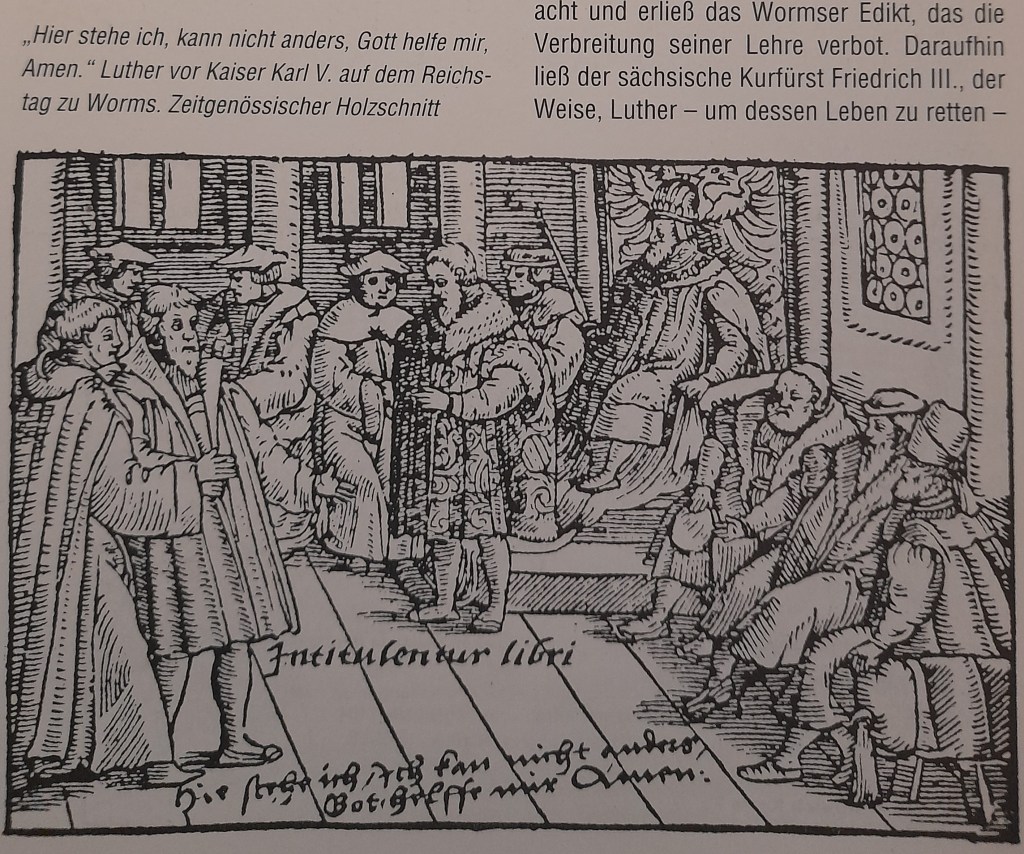 „Hier stehe ich, kann nicht anders, Gott helfe mir,
Amen.“ Luther vor Kaiser Karl V. auf dem Reichs-
tag zu Worms. Zeitgenössischer Holzschnitt
acht und erließ das Wormser Edikt, das die
Verbreitung seiner Lehre verbot. Daraufhin
ließ der sächsische Kurfürst Friedrich III., der
Weise, Luther – um dessen Leben zu retten –
Intitulentur libri
Hie stehe ich, Ich kan nicht anders,
Got helffe mir Amen.